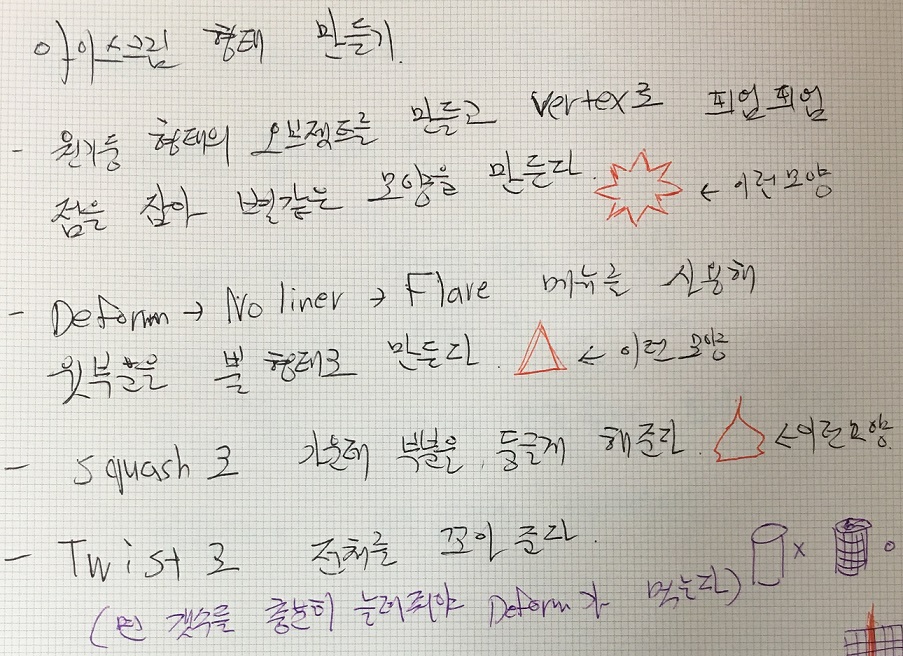 아이스크림 형태 만들기.
- 원기둥 형태의 오브젝트를 만들고 Vertex로 띄엄띄엄
점을 잡아 별같은 모양을 만든다. ← 이런모양
- Deform → No liner → Flare 메뉴를 사용해
윗부분을 뿔 형태로 만든다. ← 이런 모양
- squash로 가운데 부분을 둥글게 해준다. ← 이런모양.
- Twist로 전체를 꼬아 준다. x o
(면 갯수를 충분히 늘려줘야 Deform가 먹는다)